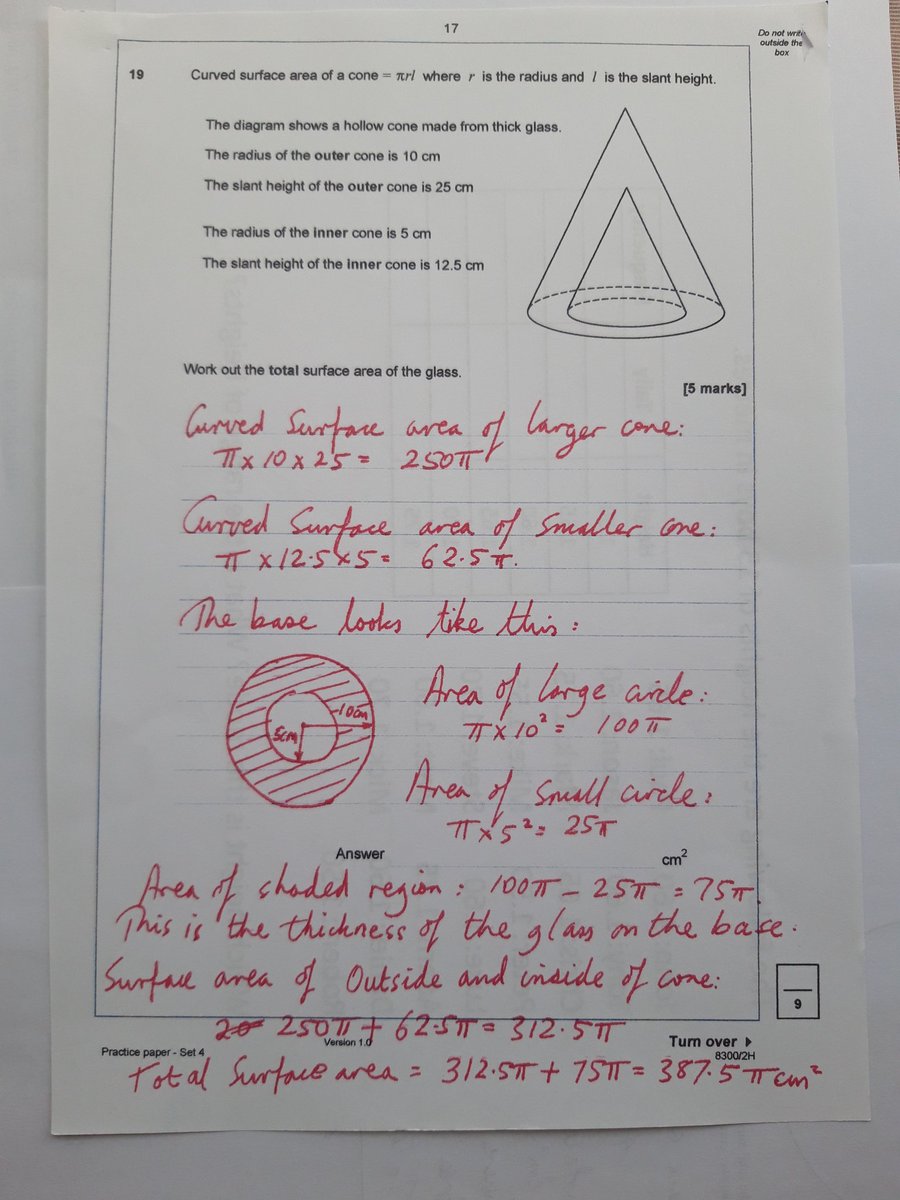 17
Do not write
outside the
box
19 Curved surface area of a cone = πrl where r is the radius and l is the slant height.
The diagram shows a hollow cone made from thick glass.
The radius of the outer cone is 10 cm
The slant height of the outer cone is 25 cm
The radius of the inner cone is 5 cm
The slant height of the inner cone is 12.5 cm
Work out the total surface area of the glass.
[5 marks]
Curved Surface area of larger cone:
π x 10 x 25 = 250π
Curved Surface area of smaller cone:
π x 12.5 x 5 = 62.5π.
The base looks like this:
10cm
5cm
Area of large circle:
π x 10² = 100π
Area of small circle:
π x 5² = 25π
Answer cm²
Area of shaded region: 100π - 25π = 75π.
This is the thickness of the glass on the base.
Surface area of Outside and inside of cone:
250π + 62.5π = 312.5π
9
Version 1.0
Turn over
Practice paper - Set 4
8300/2H
Total Surface area = 312.5π + 75π = 387.5π cm²